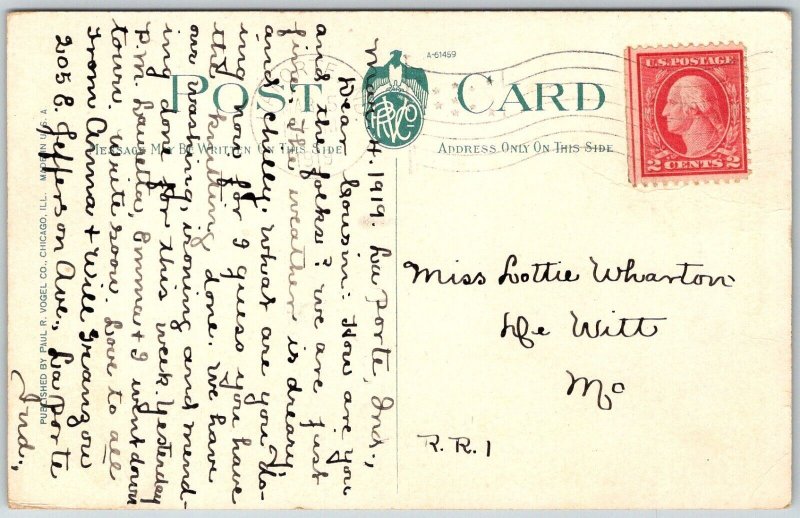 A-61459
POST CARD
MESSAGE MAY BE WRITTEN ON THIS SIDE
ADDRESS ONLY ON THIS SIDE
U.S. POSTAGE
2 CENTS 2
PUBLISHED BY PAUL R. VOGEL CO., CHICAGO, ILL. MADE IN U.S.A.
4. 1919. La Porte, Ind.,
Dear Cousin: How are you
and the folks? We are just
fine. The weather is dreary
and chilly. What are you do-
ing now for I guess you have
the knitting done. We have
our washing, ironing and mend-
ing done for this week. Yesterday
P.M. Lauretta, Emma & I went down
town. Write soon. Love to all
From Anna & Will Grangow
205 E Jefferson Ave., La Porte
Ind.,
Miss Lottie Wharton
De Witt
Mo
R.R.1